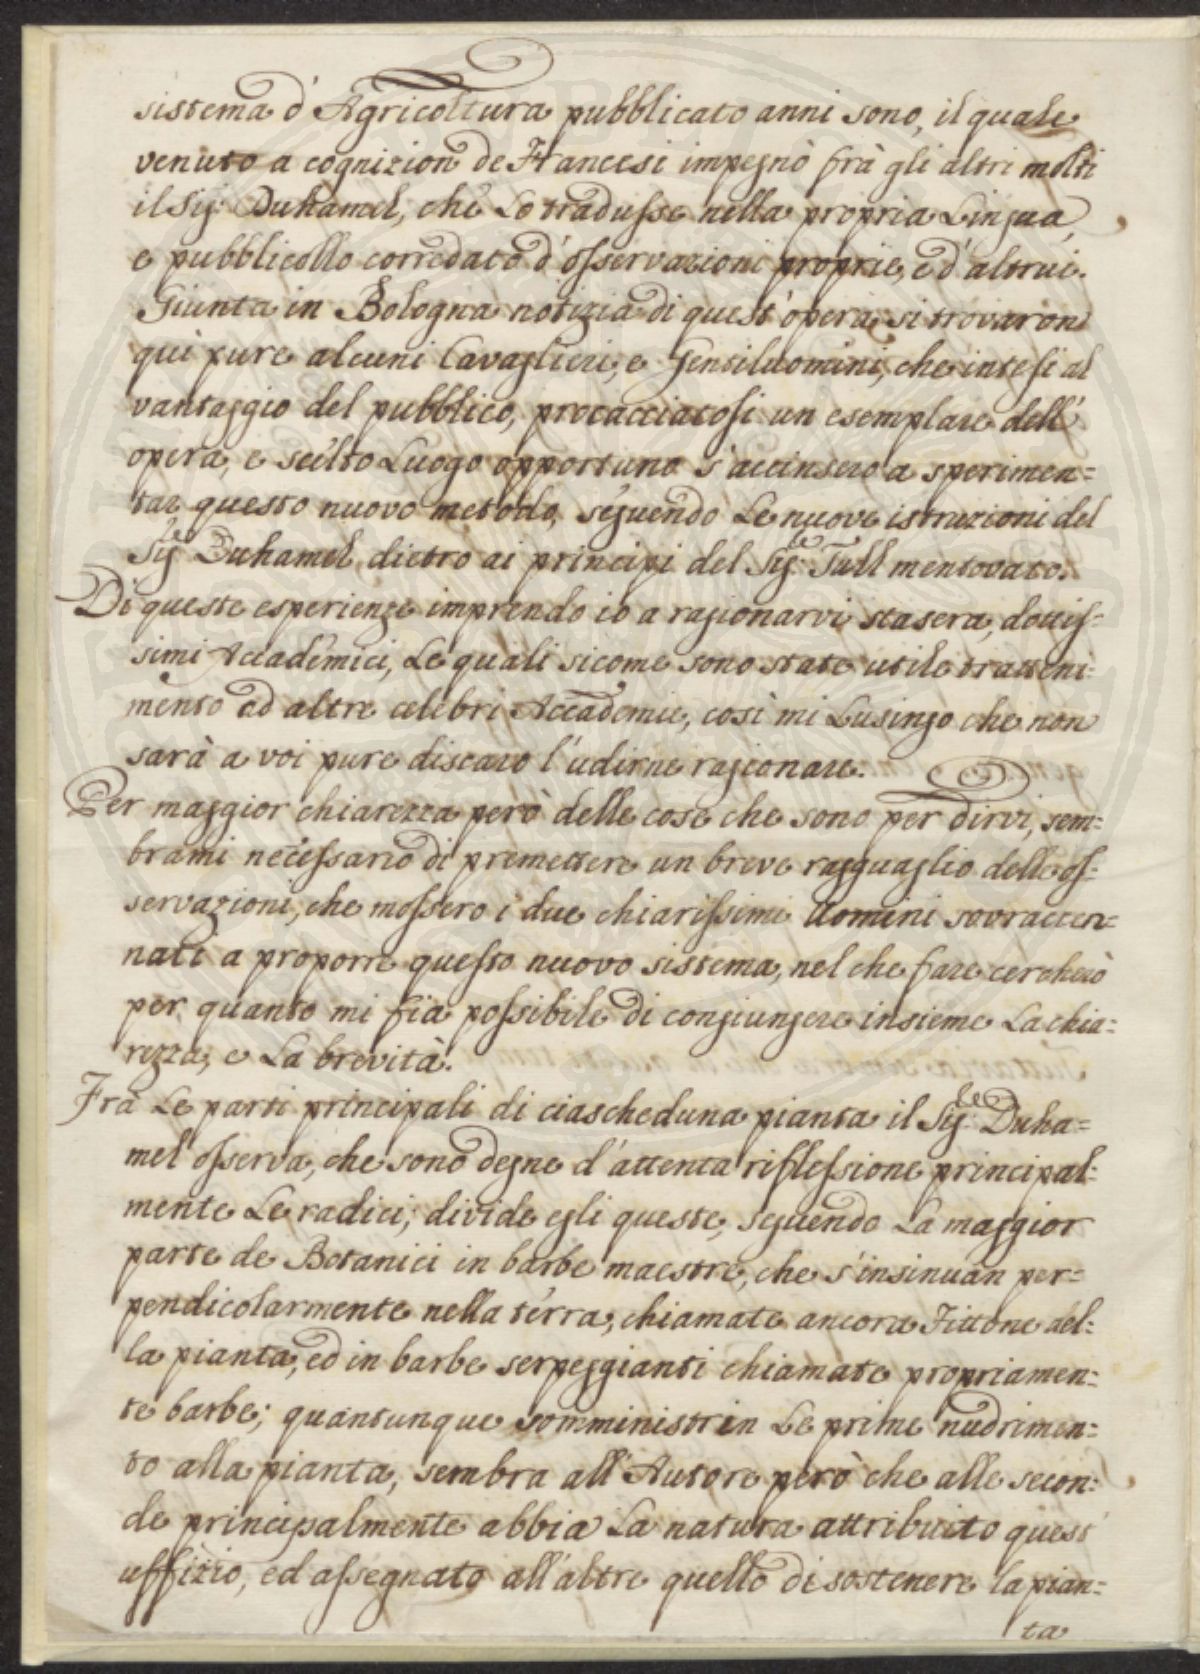 sistema d'Agricoltura pubblicato anni sono, il quale
venuto a cognizion de Francesi impegnò frà gli altri molti
il Sig: Duhamel, che lo tradusse nella propria Lingua,
e pubblicollo corredato d'osservazioni proprie, e d'altrui.
Giunta in Bologna notizia di quest'opera, si trovaron
quì pure alcuni Cavaglieri, e Gentiluomini, che intesi al
vantaggio del pubblico, procacciatosi un esemplare dell'
opera, e scelto Luogo opportuno s'accinsero a sperimen=
tar questo nuovo metodo, seguendo Le nuove istruzioni del
Sig.re Duhamel dietro ai principj del Sig.re Tull mentovato.
Di queste esperienze imprendo io a ragionarvi stasera, dottis=
simi Accademici, Le quali sicome sono state utile tratteni=
mento ad altre celebri Accademie, così mi Lusingo che non
sarà a voi pure discaro l'udirne ragionare.
Per maggior chiarezza però delle cose che sono per dirvi, sem=
brami necessario di premettere un breve ragguaglio delle os=
servazioni, che mossero i due chiarissimi Uomini sovraccen=
nati a proporre questo nuovo sistema, nel che fare cercherò
per quanto mi fia possibile di congiungere insieme La chia=
rezza, e La brevità.
Frà Le parti principali di ciascheduna pianta il Sig:re Duha=
mel osserva, che sono degne d'attenta riflessione principal=
mente Le radici; divide egli queste, seguendo La maggior
parte de Botanici in barbe maestre, che s'insinuan per=
pendicolarmente nella terra, chiamate ancora Fittone del=
la pianta, ed in barbe serpeggianti chiamate propriamen=
te barbe; quantunque somministrin Le prime nudrimen=
to alla pianta, sembra all'Autore però che alle secon=
de principalmente abbia La natura attribuito quest'
uffizio, ed assegnato all'altre quello di sostenere la pian=
ta